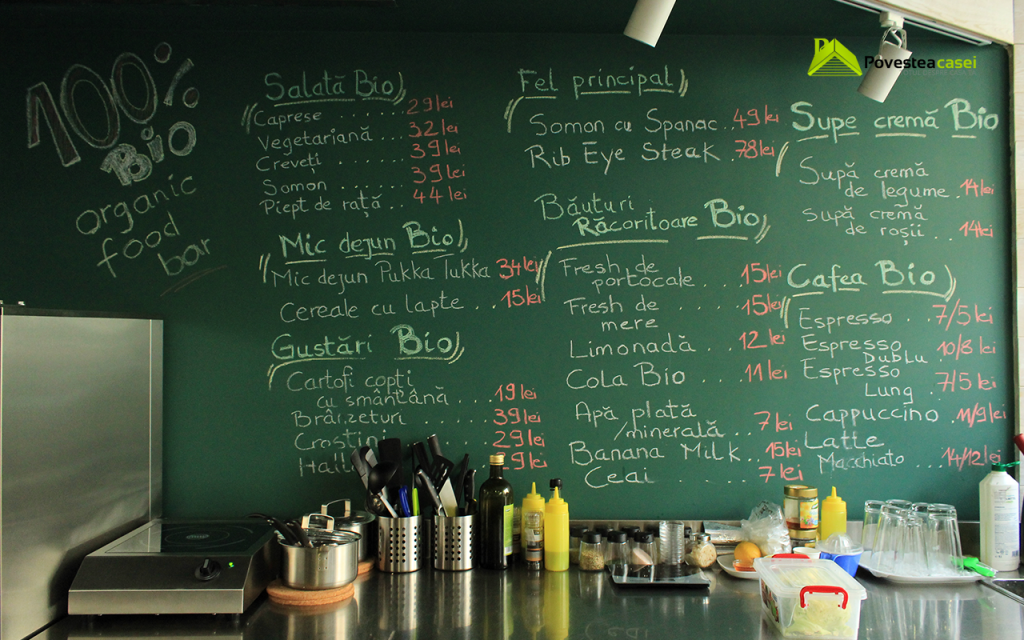 100%
Bio
organic
food
bar
Salată Bio
Caprese ...... 29 lei
Vegetariană ... 32 lei
Creveți ...... 39 lei
Somon ...... 39 lei
Piept de rață .. 44 lei
Mic dejun Bio
Mic dejun Pukka Tukka 34 lei
Cereale cu lapte ... 15 lei
Gustări Bio
Cartofi copți
cu smântână ... 19 lei
Brânzeturi ..... 39 lei
29 lei
29 lei
Fel principal
Somon cu Spanac .. 49 lei
Rib Eye Steak . 78 lei
Băuturi
Răcoritoare Bio
Fresh de
portocale ... 15 lei
Fresh de
mere ... 15 lei
Limonadă ... 12 lei
Cola Bio .... 11 lei
Apă plată
/minerală ... 7 lei
Banana Milk .. 15 lei
Ceai ..... 7 lei
Povestea casei
Supe cremă Bio
Supă cremă
de legume . 14 lei
Supă cremă
de roșii .. 14 lei
Cafea Bio
Espresso ... 7/5 lei
Espresso
Dublu . 10/8 lei
Espresso
Lung . 7/5 lei
Cappuccino . 11/9 lei
Latte
Macchiato ... 14/12 lei